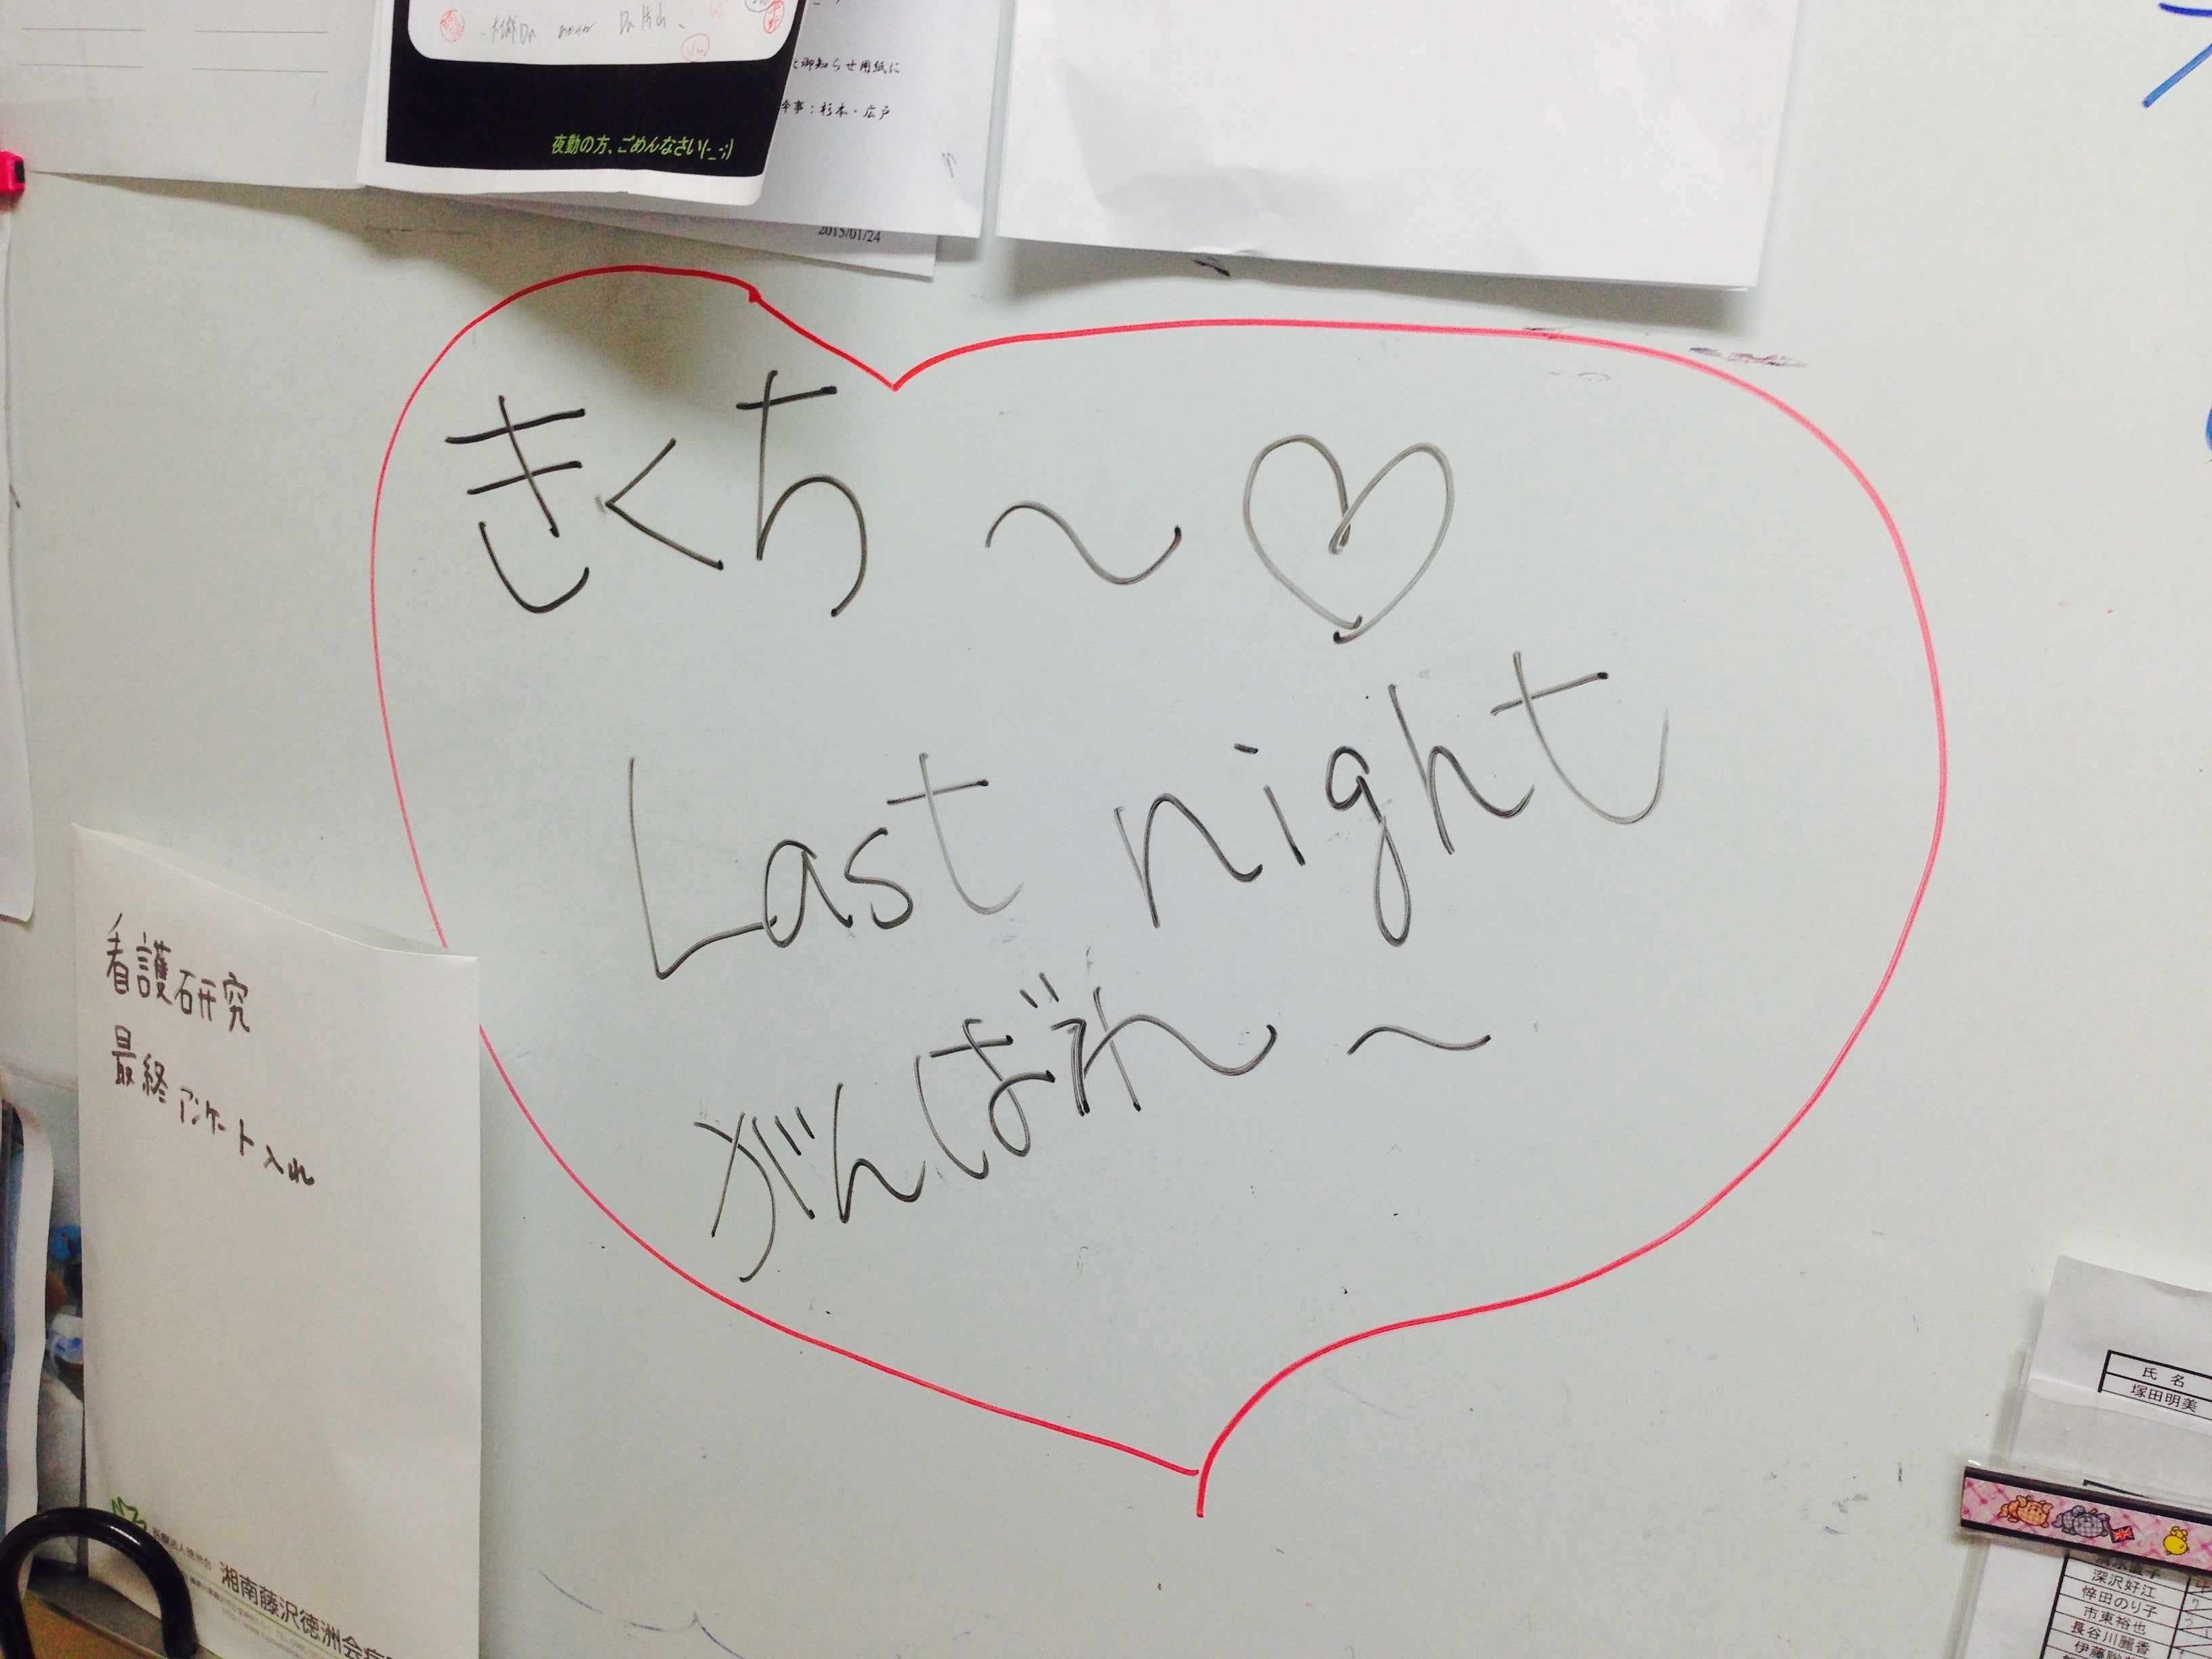 夜勤の方、ごめんなさい(-_-;)
と御知らせ用紙に
幹事：杉本・広戸
2015/01/24
きくち〜♡
Last night
がんばれ〜
看護研究
最終アンケート入れ
湘南藤沢徳洲会病
氏名
塚田明美
深沢好江
倖田のり子
市東裕也
長谷川麗香